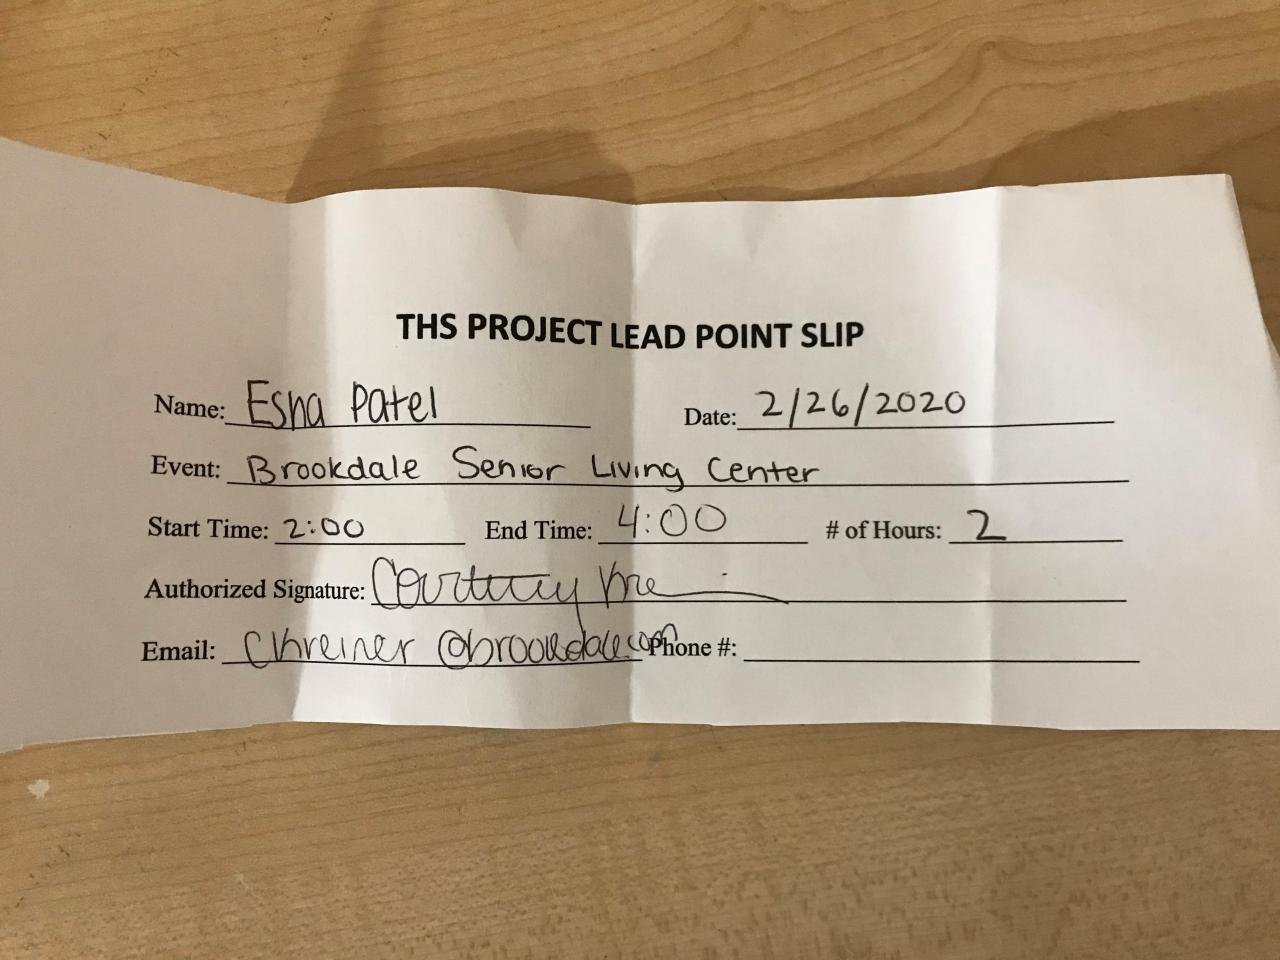 THS PROJECT LEAD POINT SLIP
Name: Esha Patel Date: 2/26/2020
Event: Brookdale Senior Living Center
Start Time: 2:00 End Time: 4:00 # of Hours: 2
Authorized Signature: Courtney
Email: Ckreiner@brookdale.com Phone #: